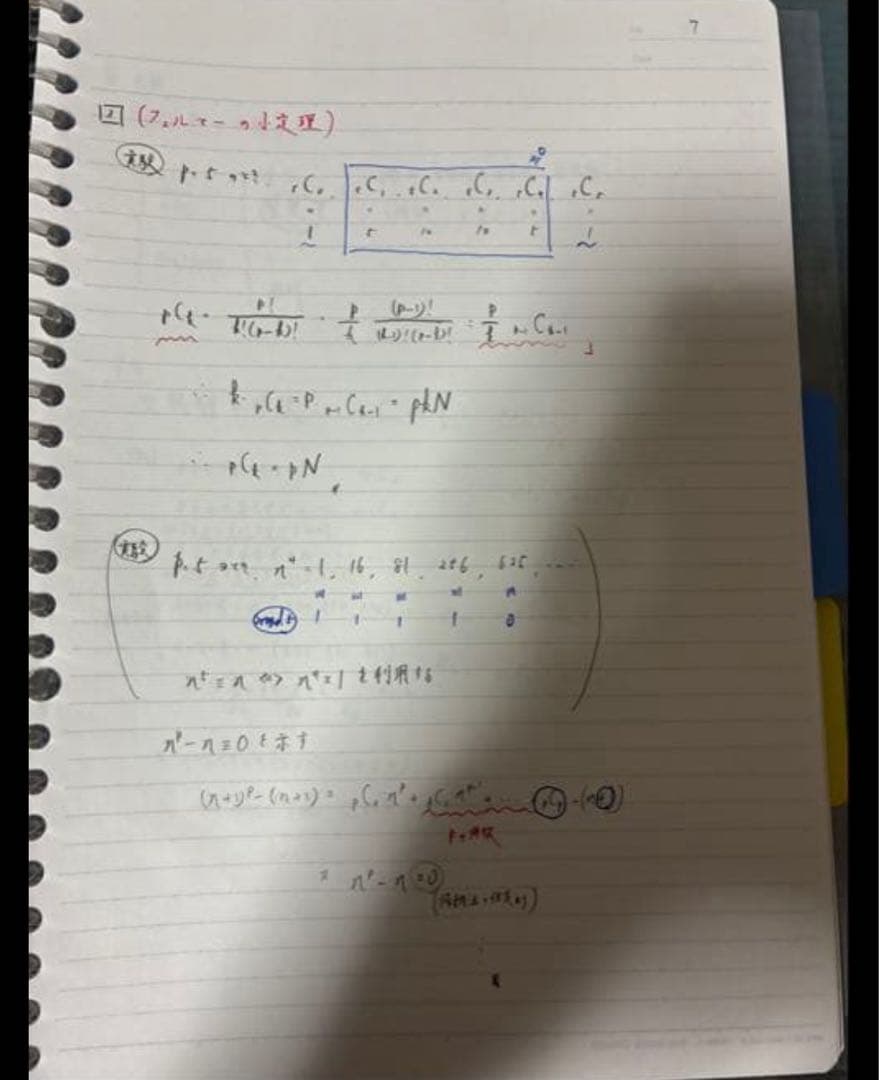 7
2 (フェルマーの小定理)
実験 p=5のとき. ₅C₀ ₅C₁ ₅C₂ ₅C₃ ₅C₄ ₅C₅
1 5 10 10 5 1
pCk = p!/k!(p-k)! = p/k (p-1)!/(k-1)!(p-k)! = p/k p-1Ck-1
∴ k・pCk = p p-1Ck-1 = pkN
∴ pCk = pN
実験 p=5のとき, n⁴ = 1, 16, 81, 256, 625, ....
mod5 1 1 1 1 0
n⁵ ≡ n ⇔ n⁴ ≡ 1 を利用する
nᵖ - n ≡ 0 を示す
(n+1)ᵖ - (n+1) = pC₀ nᵖ + pC₁ nᵖ⁻¹ + ..... pCp - (n+1)
pの倍数
≡ nᵖ - n ≡ 0
(帰納法の仮定より)